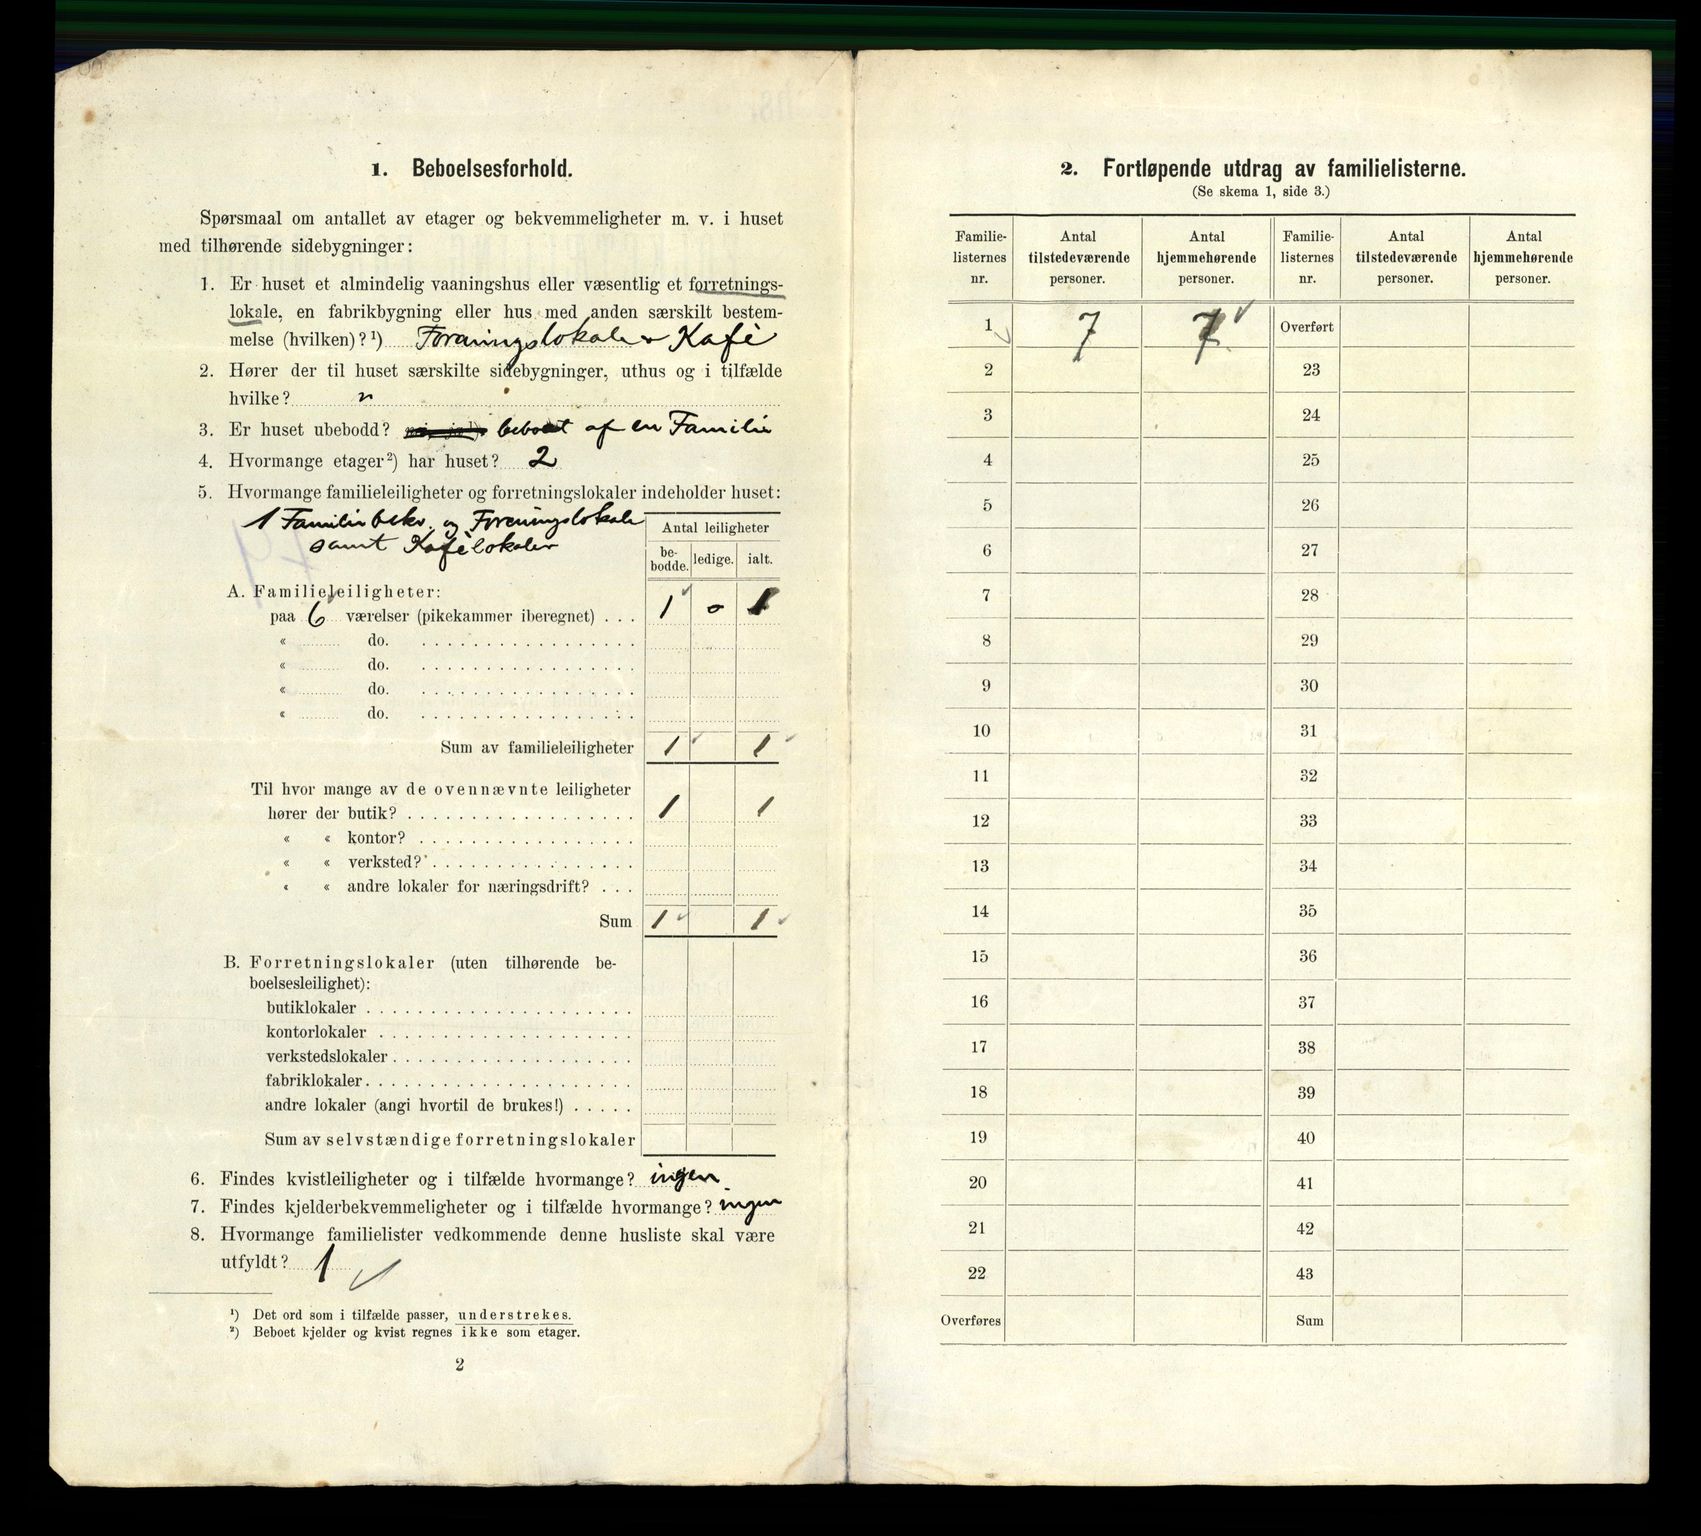 1. Beboelsesforhold.
Spørsmaal om antallet av etager og bekvemmeligheter m. v. i huset
med tilhørende sidebygninger:
1. Er huset et almindelig vaaningshus eller væsentlig et forretnings-
lokale, en fabrikbygning eller hus med anden særskilt bestem-
melse (hvilken)?¹) Foreningslokale & Kafè
2. Hører der til huset særskilte sidebygninger, uthus og i tilfælde
hvilke? "
3. Er huset ubebodd? beboet af en Familie
4. Hvormange etager²) har huset? 2
5. Hvormange familieleiligheter og forretningslokaler indeholder huset:
1 Familiebekv. og Foreningslokale
samt Kafèlokaler
Antal leiligheter
be-
bodde. ledige. ialt.
A. Familieleiligheter:
paa 6 værelser (pikekammer iberegnet) . . . 1 0 1
« do.
« do.
« do.
« do.
Sum av familieleiligheter 1 1
Til hvor mange av de ovennævnte leiligheter
hører der butik? 1 1
« « kontor?
« « verksted?
« « andre lokaler for næringsdrift? . . .
Sum 1 1
B. Forretningslokaler (uten tilhørende be-
boelsesleilighet):
butiklokaler
kontorlokaler
verkstedslokaler
fabriklokaler
andre lokaler (angi hvortil de brukes!)
Sum av selvstændige forretningslokaler
6. Findes kvistleiligheter og i tilfælde hvormange? ingen
7. Findes kjelderbekvemmeligheter og i tilfælde hvormange? ingen
8. Hvormange familielister vedkommende denne husliste skal være
utfyldt? 1
¹) Det ord som i tilfælde passer, understrekes.
²) Beboet kjelder og kvist regnes ikke som etager.
2
2. Fortløpende utdrag av familielisterne.
(Se skema 1, side 3.)
Familie-
listernes
nr. Antal
tilstedeværende
personer. Antal
hjemmehørende
personer. Familie-
listernes
nr. Antal
tilstedeværende
personer. Antal
hjemmehørende
personer.
1 7 7 Overført
2 23
3 24
4 25
5 26
6 27
7 28
8 29
9 30
10 31
11 32
12 33
13 34
14 35
15 36
16 37
17 38
18 39
19 40
20 41
21 42
22 43
Overføres Sum